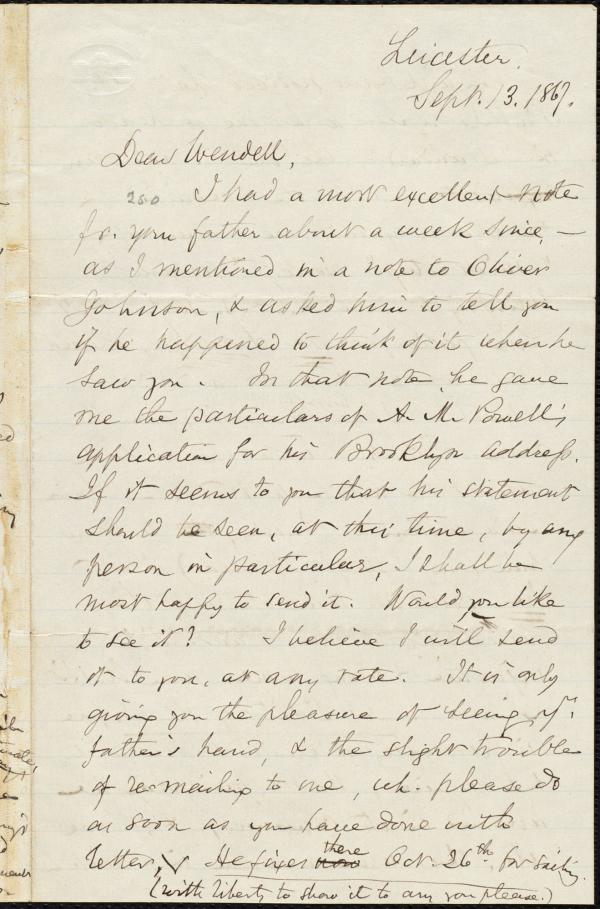 Leicester.
Sept. 13. 1867.
Dear Wendell,
I had a most excellent note
fr. your father about a week since, —
as I mentioned in a note to Oliver
Johnson, & asked him to tell you
if he happened to think of it when he
saw you. In that note, he gave
me the particulars of A. M. Powell's
application for his Brooklyn address.
If it seems to you that his statement
should be seen, at this time, by any
person in particular, I shall be
most happy to send it. Would you like
to see it? I believe I will send
it to you, at any rate. It is only
giving you the pleasure of seeing yr.
father's hand, & the slight trouble
of re-mailing to me, wh. please do
as soon as you have done with
letter, He fixes there Oct. 26th for sailing.
(with liberty to show it to any you please.)